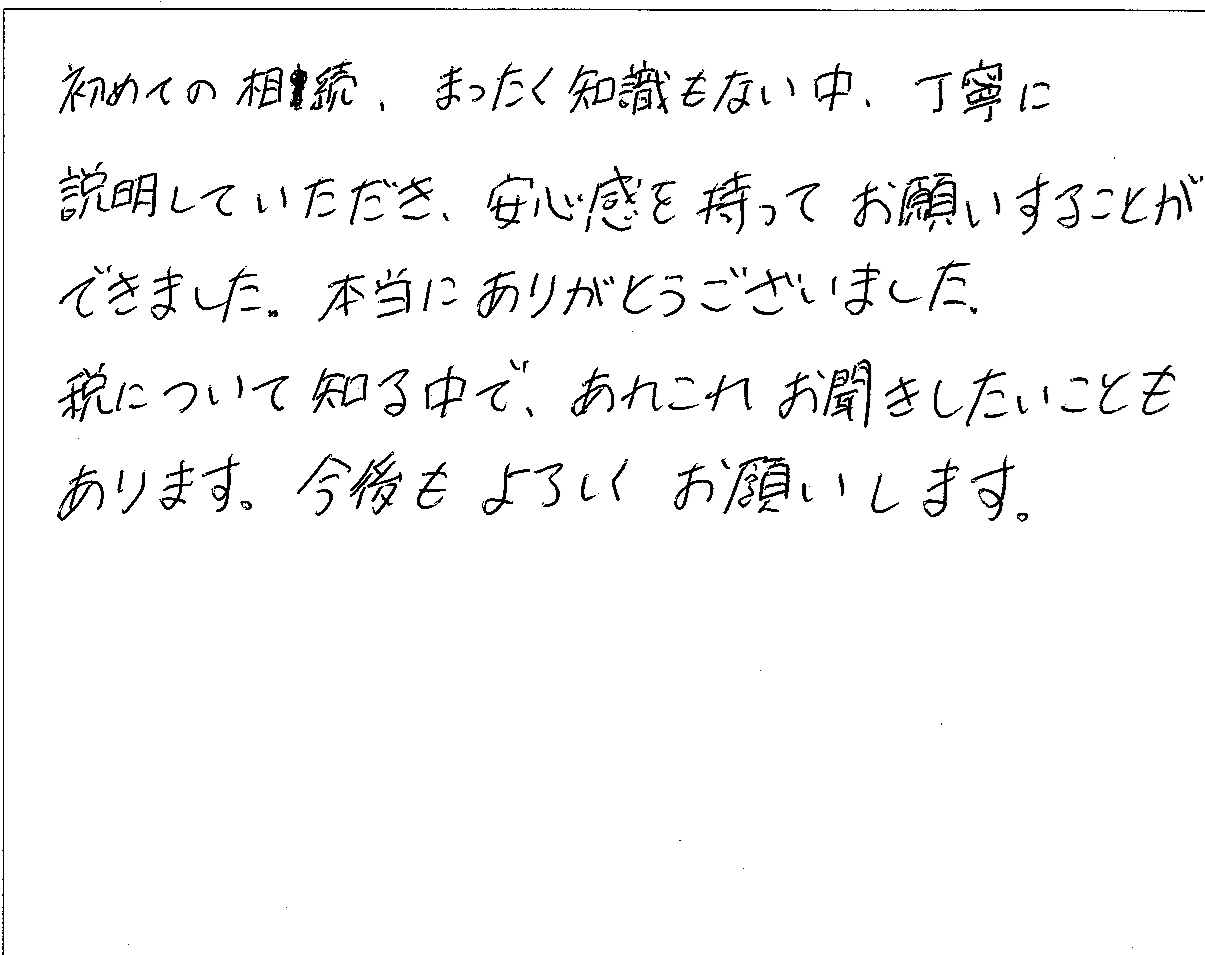 初めての相続、まったく知識もない中、丁寧に
説明していただき、安心感を持ってお願いすることが
できました。本当にありがとうございました。
税について知る中で、あれこれお聞きしたいことも
あります。今後もよろしくお願いします。